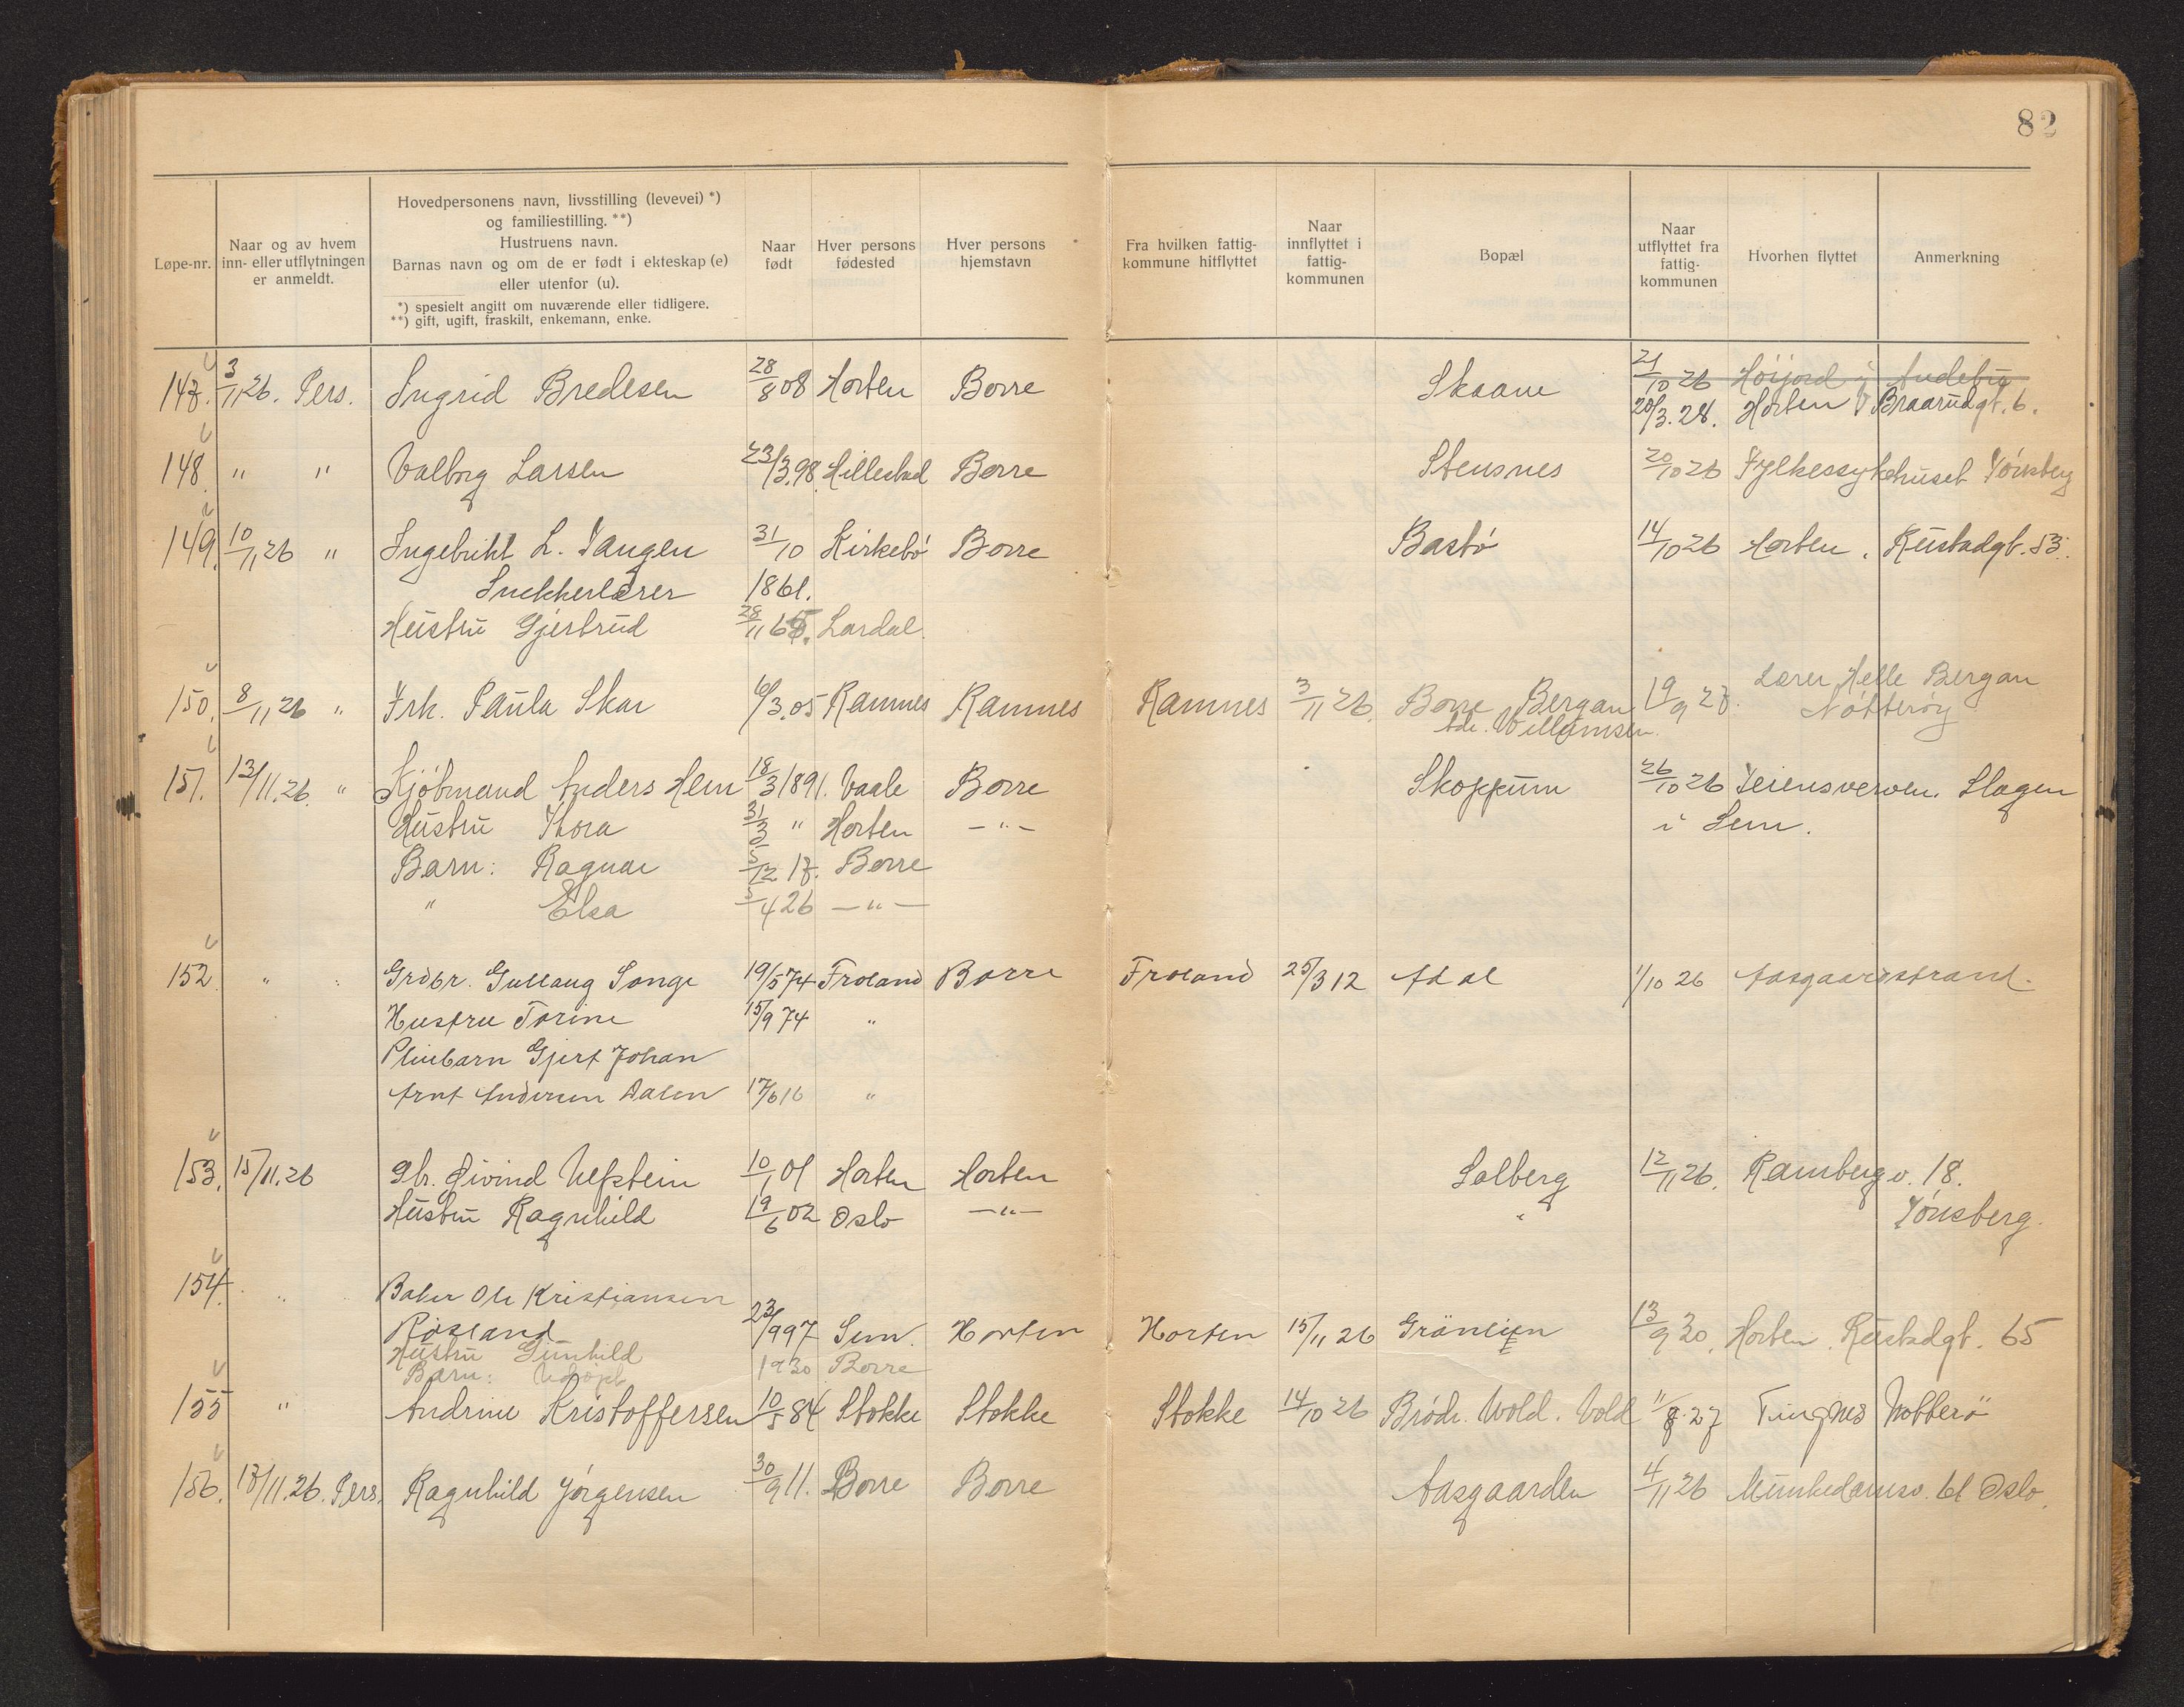 82
Løpe-nr.
Naar og av hvem
inn- eller utflytningen
er anmeldt.
Hovedpersonens navn, livsstilling (levevei) *)
og familiestilling. **)
Hustruens navn.
Barnas navn og om de er født i ekteskap (e)
eller utenfor (u).
*) spesielt angitt om nuværende eller tidligere.
**) gift, ugift, fraskilt, enkemann, enke.
Naar
født
Hver persons
fødested
Hver persons
hjemstavn
Fra hvilken fattig-
kommune hitflyttet
Naar
innflyttet i
fattig-
kommunen
Bopæl
Naar
utflyttet fra
fattig-
kommunen
Hvorhen flyttet
Anmerkning
147. 3/11 26. Pers. Ingrid Bredesen 28/8 08 Horten Borre Skaane 21/10 26 Høijord i Andebu
20/3. 28. Horten Braarudgt. 6.
148 " " Valborg Larsen 23/3.98 Hillestad Borre Stensnes 20/10 26 Fylkessykehuset Tønsberg
149. 10/11 26 " Ingebrikt L. Tangen 31/10 Kirkebø Borre Bastø 14/10 26 Horten. Rustadgt. 53.
Snekkerlærer 1861.
Hustru Gjertrud 28/11 65. Lardal.
Lærer Helle Bergan
150. 8/11 26 " Frk. Paula Skar 6/3.05 Ramnes Ramnes Ramnes 3/11 26. Borre Bergan 19/9 27. Nøtterøy
adr. Willumsen.
151. 13/11.26. " Kjøbmand Anders Hem 18/3 1891. Vaale Borre Skoppum 26/10 26 Teiensverven. Slagen
Hustru Thora 31/3 " Horten —"— i Sem.
Barn: Ragnar 5/12 17. Borre
" Elsa 3/4 26 —"—
152. " Grdbr. Gullaug Songe 19/5 74 Froland Borre Froland 25/3 12 Adal 1/10 26 Aasgaardstrand.
Hustru Torine 15/9 74 "
Pleiebarn Gjert Johan
Arnt Andersen Dalen 17/6 16 "
153. 15/11.26 Gbr. Øivind Ulfstein 10/1 01 Horten Horten Solberg 12/11 26. Rambergv. 18.
Hustru Ragnhild 19/6 02 Oslo —"— " Tønsberg.
154. " Baker Ole Kristiansen
Røsland 23/9 97 Sem. Horten Horten 15/11 26 Grönlien 13/9 30. Horten. Rustadgt. 65
Hustru Gunhild
Barn: Udøpt 1930 Borre
155 " Andrine Kristoffersen 10/5 84 Stokke Stokke Stokke 14/10 26 Brødr. Wold. Vold 11/8 27 Tingnes Nøtterö
156. 17/11.26. Pers. Ragnhild Jørgensen 30/9 11. Borre Borre Aasgaarden 4/11 26 Munkedamsv. 61 Oslo.